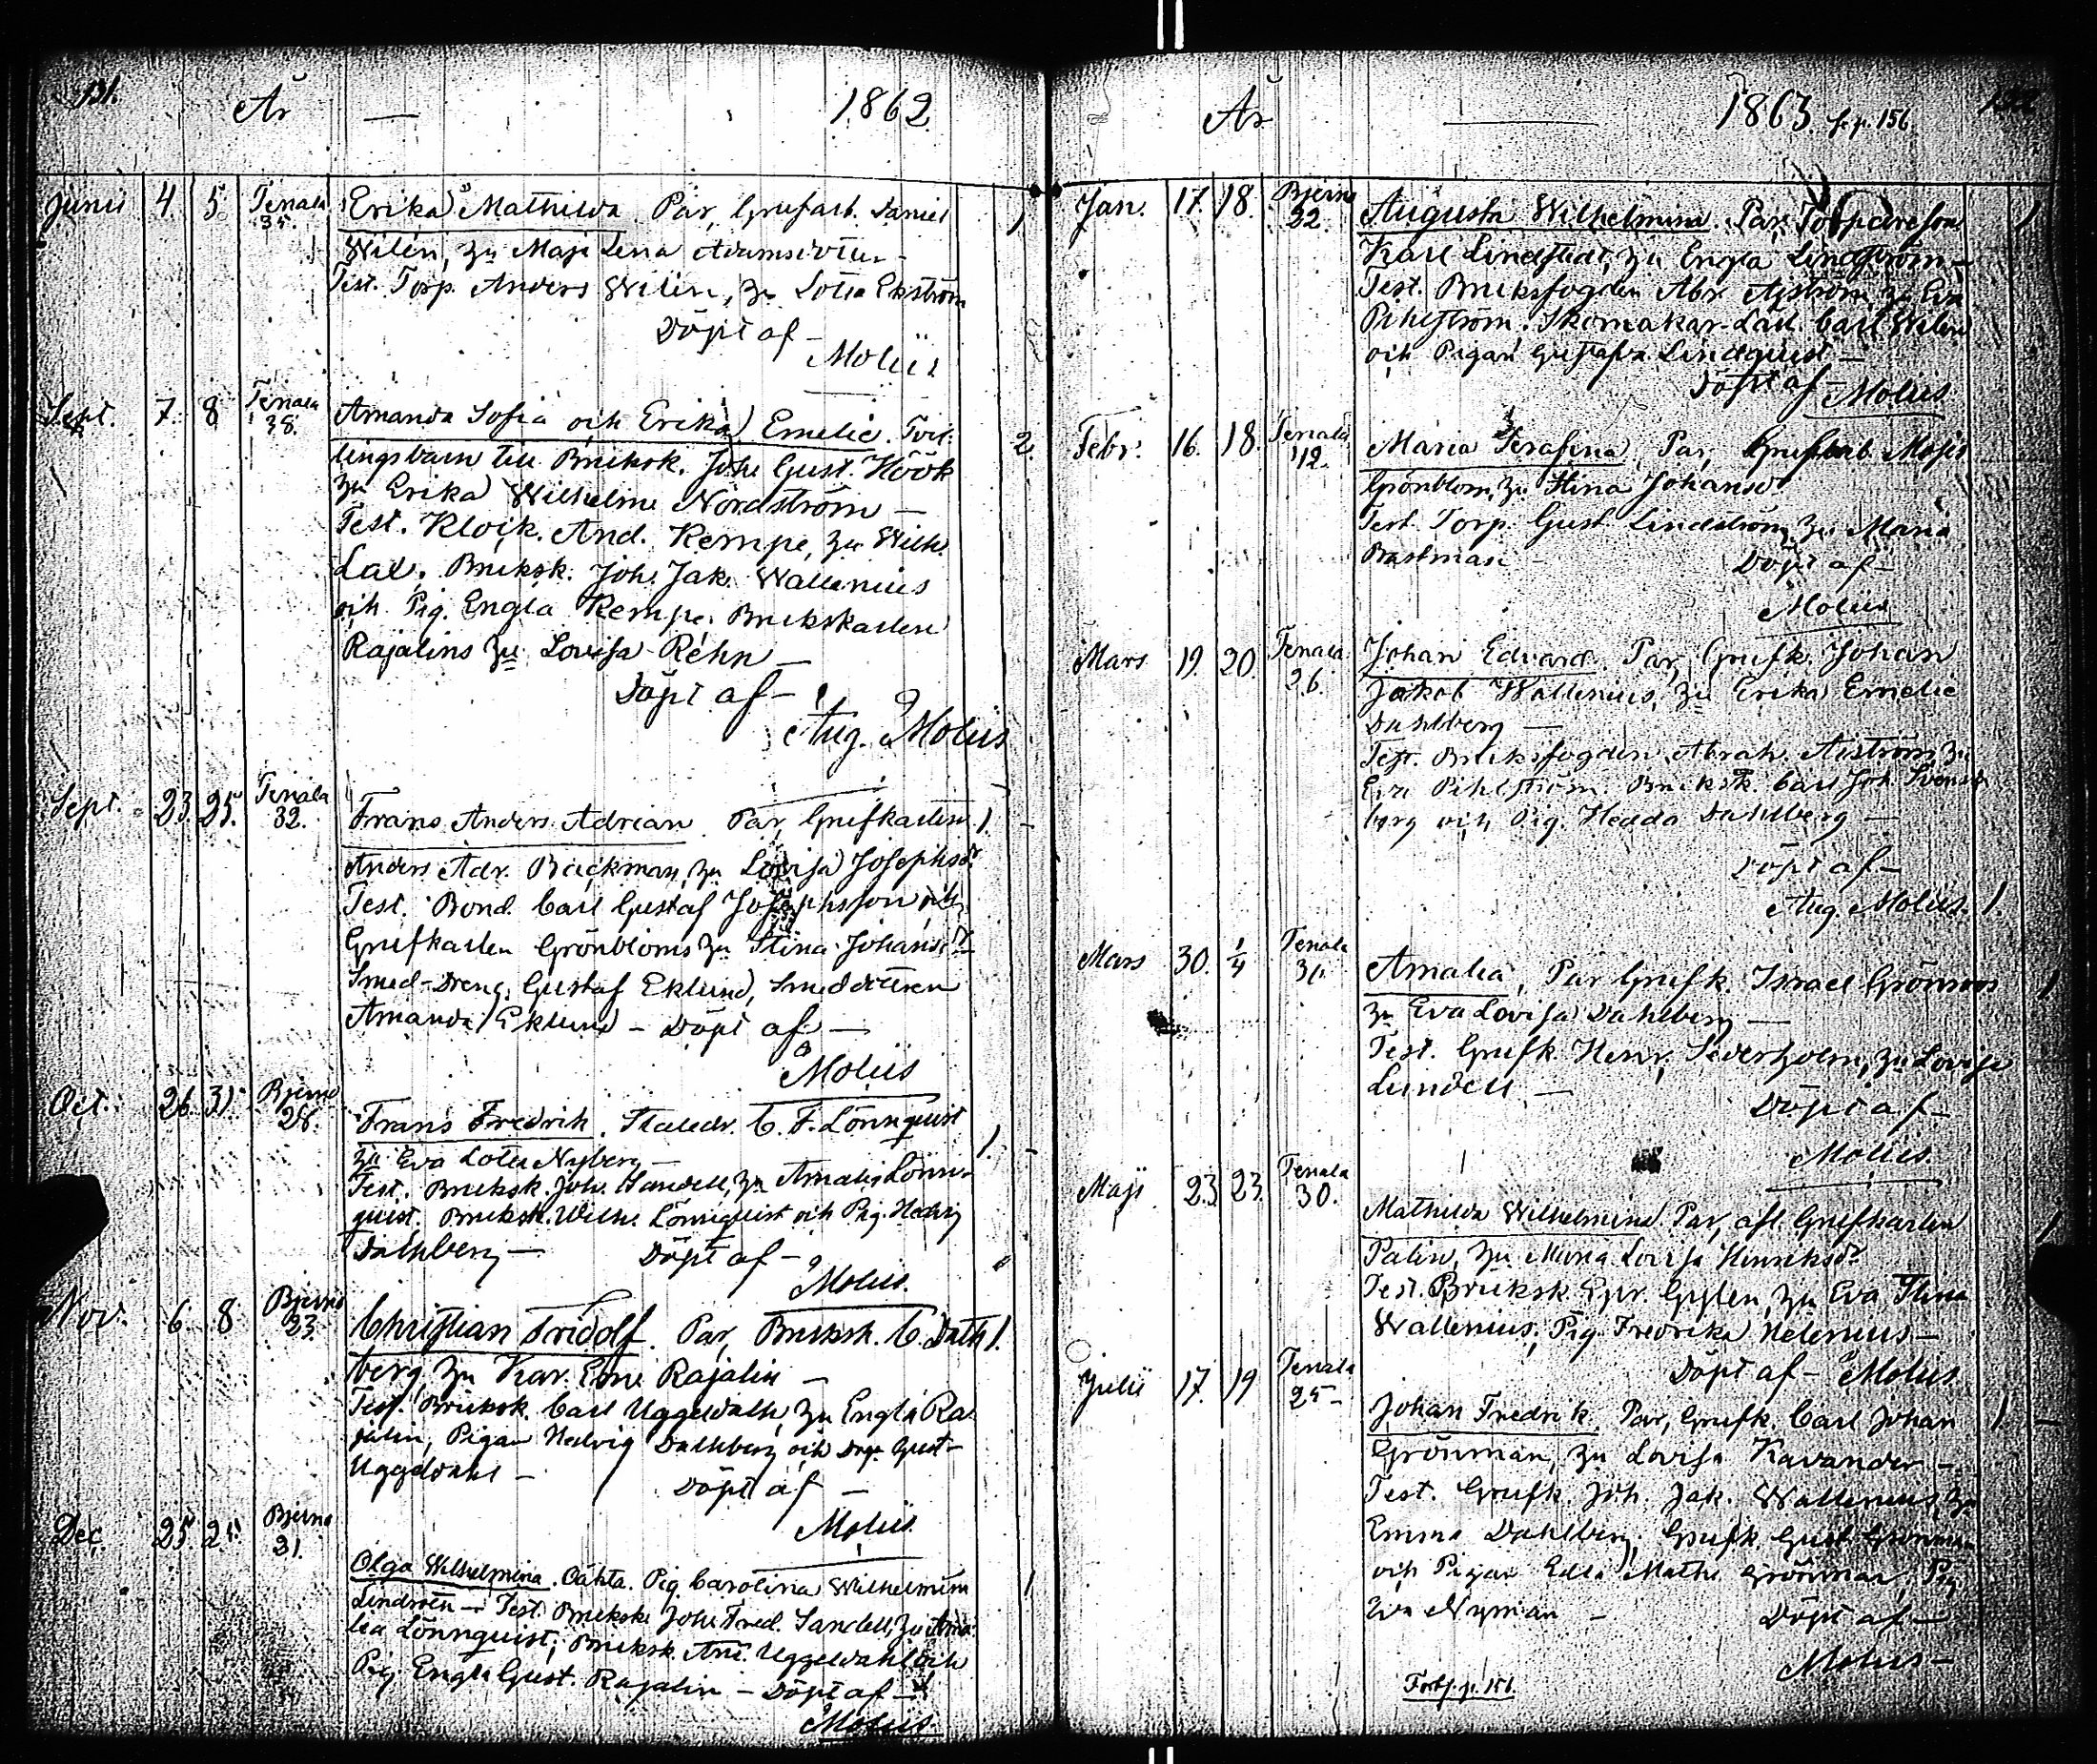 131.
År — 1862.
Junii 4. 5. Tenala 35. Erika Mathilda. Par, Grufarb. Daniel 1
Wilén, zu Maja Lena Adamsdotter –
Test. Torp. Anders Wilén, zu Lotta Ekström
Döpt af –
Molin
Sept. 7. 8 Tenala 38. Amanda Sofia och Erika Emelie. Tvil- 2.
lingsbarn till Bruksk. Joh. Gust. Höök
zu Erika Wilhelm. Nordström –
Test. Klock. And. Kempe, zu Wilh.
Lax. Bruksk. Joh. Jak. Wallenius
och Pig. Engla Kempe. Brukskarlen
Rajalins zu Lovisa Rehn –
Döpt af –
Aug. Molin
Sept. 23. 25. Tenala 32. Frans Anders Adrian. Par, Grufkarlen 1.
Anders Adr. Backman, zu Lovisa Josephsdr
Test. Bond. Carl Gustaf Josephsson och
Grufkarlen Grönbloms zu Stina Johansdr
Smed-Dreng. Gustaf Eklund, Smeddottren
Amanda Eklund – Döpt af –
Molin
Oct. 26. 31. Bjerno 28. Frans Fredrik. Stalldr. C. F. Lönnquist 1.
zu Eva Lotta Nyberg –
Test. Bruksk. Joh. Sandell, zu Amalia Lönn-
quist. Bruksk. Wilh. Lönnquist och Pig. Hedvig
Dahlberg – Döpt af –
Molin.
Nov. 6. 8 Bjerno 23. Christian Fridolf. Par, Bruksk. C. Dahl- 1.
berg zu Kar. Erne. Rajalin –
Test. Bruksk. Carl Uggeldahl, zu Engla Ra-
jalin, Pigan Hedvig Dahlberg och Dreng. Gust.
Uggeldahl – Döpt af –
Molin
Dec. 25. 25. Bjerno 21. Olga Wilhelmina. Oäkta. Pig. Carolina Wilhelmina 1
Lindroth – Test. Bruksk. Joh. Fred. Sandell, zu Ama-
lia Lönnquist; Bruksk. And. Uggeldahl och
Pig. Engla Gust. Rajalin – Döpt af –
Molin.
År — 1863. se p. 156 132
Jan. 17. 18. Bjerno 22. Augusta Wilhelmina. Par, Torpareson 1
Karl Lindstedt, zu Engla Lindström –
Test. Bruksfogden Abr. Åström, zu Eva
Pihlström. Skomakar-Lärl. Carl Wilen
och Pigan Gustafva Lindquist –
Döpt af – Molin
Febr. 16. 18. Tenala 42. Maria Serafina, Par, Grufarb. Moses
Grönblom, zu Stina Johansdr
Test. Torp. Gust. Lindström, zu Maria
Bastman – Döpt af –
Molin
Mars 19. 20. Tenala 26. Johan Edvard. Par, Grufk. Johan
Jakob Wallenius, zu Erika Emelie
Dahlberg –
Test. Bruksfogden Abrah. Åström, zu
Eva Pihlström. Bruksk. Carl Joh. Svens-
berg och Pig. Hedda Dahlberg –
Döpt af –
Aug. Molin. 1.
Mars 30. 1/4 Tenala 31. Amalia, Par Grufk. Israel Grönroos 1
zu Eva Lovisa Dahlberg –
Test. Grufk. Henr. Sederholm, zu Lovisa
Lundell – Döpt af –
Molin.
Maji 23 23. Tenala 30. Mathilda Wilhelmina Par, afl. Grufkarlen 1
Palin, zu Maria Lovisa Henriksdr
Test. Bruksk. Epr. Gylen, zu Eva Stina
Wallenius; Pig. Fredrika Helenius –
Döpt af – Molin.
Julii 17. 19 Tenala 25 Johan Fredrik. Par, Grufk. Carl Johan 1 –
Grönman, zu Lovisa Kavander –
Test. Grufk. Joh. Jak. Wallenius, zu
Emma Dahlberg; Grufk. Gust. Grönman
och Pigan Edla Math. Grönman, Pig.
Eva Nyman – Döpt af –
Molin –
Forts. p. 156.